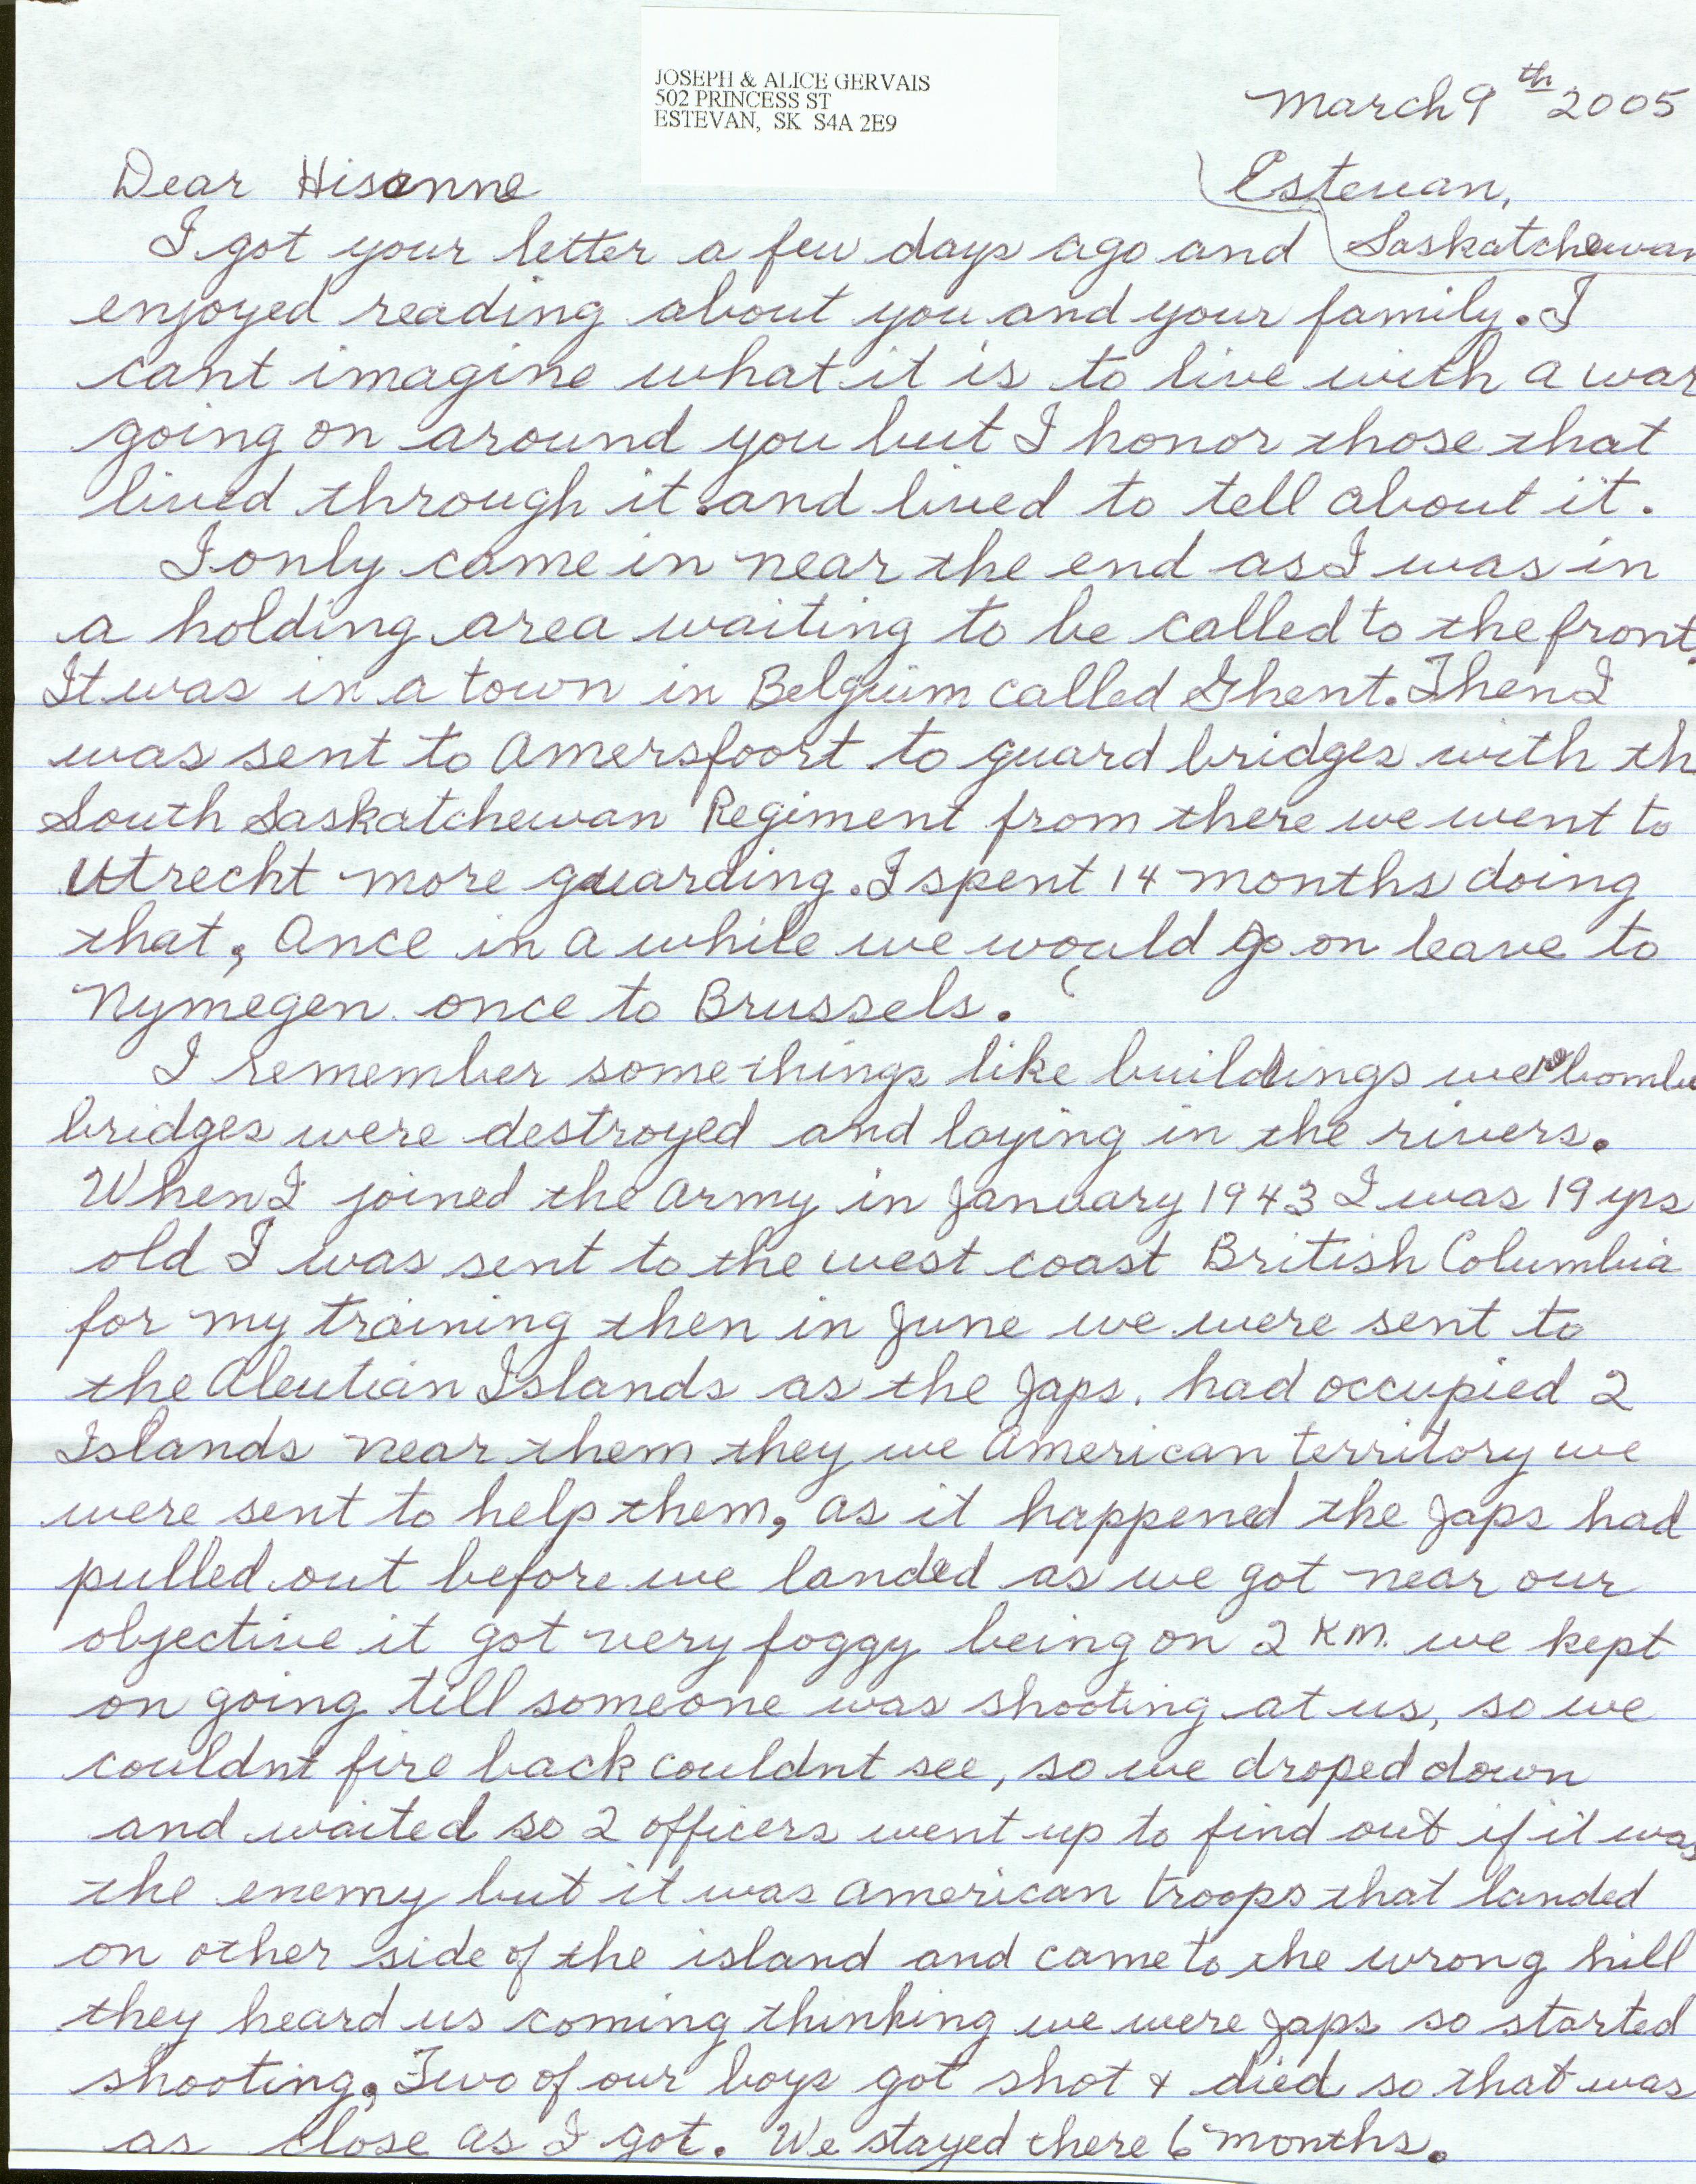 JOSEPH & ALICE GERVAIS
502 PRINCESS ST
ESTEVAN, SK S4A 2E9
March 9th 2005
Estevan,
Saskatchewan
Dear Hisanne
I got your letter a few days ago and
enjoyed reading about you and your family. I
cant imagine what it is to live with a war
going on around you but I honor those that
lived through it and lived to tell about it.
I only came in near the end as I was in
a holding area waiting to be called to the front.
It was in a town in Belguim called Ghent. Then I
was sent to Amersfoort to guard bridges with th
South Saskatchewan Regiment from there we went to
Utrecht more guarding. I spent 14 months doing
that, Once in a while we would go on leave to
Nymegen once to Brussels.
I remember some things like buildings were bombe
bridges were destroyed and laying in the rivers.
When I joined the army in January 1943 I was 19 yrs
old I was sent to the west coast British Columbia
for my training then in June we were sent to
the Aleutian Islands as the Japs. had occupied 2
Islands near them they we American territory we
were sent to help them, as it happened the Japs had
pulled out before we landed as we got near our
objective it got very foggy being on 2 Km. we kept
on going till someone was shooting at us, so we
couldnt fire back couldnt see, so we droped down
and waited so 2 officers went up to find out if it was
the enemy but it was American troops that landed
on other side of the island and came to the wrong hill
they heard us coming thinking we were Japs so started
shooting, Two of our boys got shot & died so that was
as close as I got. We stayed there 6 months.